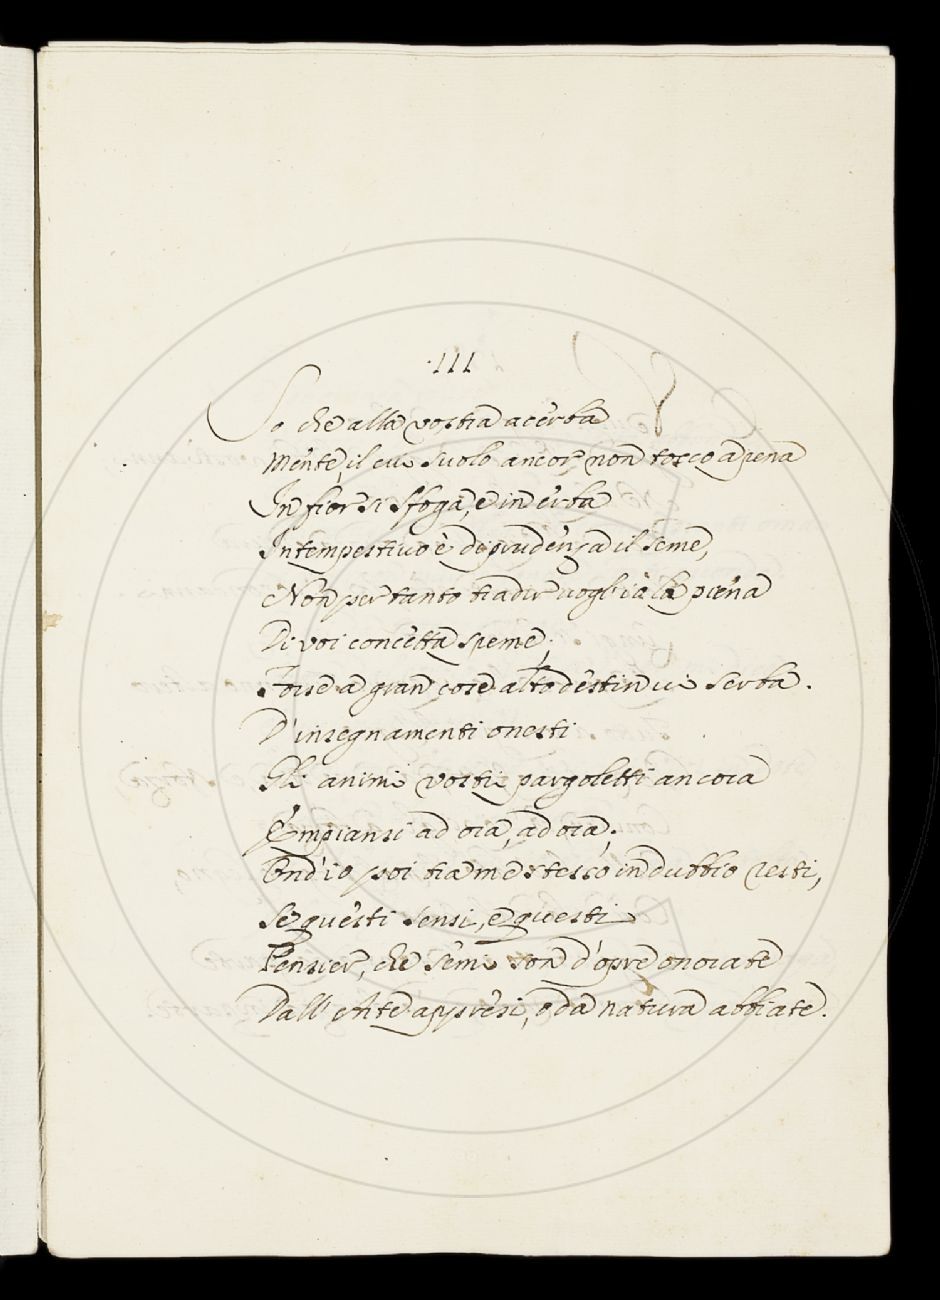 ·III
So che alla vostra acerba
Mente, il cui suolo ancor non tosco apena
In fior si sfoga, e in erba
Intempestivo è di prudenza il seme,
Non per tanto tradir vogl'io la piena
Di voi concetta speme;
Forse a gran cose alto destin vi serba.
D'insegnamenti onesti
Gli animi vostri pargoletti ancora
Empiansi ad ora, ad ora;
Ond'io poi tra me stesso in dubbio resti,
Se questi sensi, e questi
Pensier, che semi son d'opre onorate
Dall'Arte appresi, o da natura abbiate.